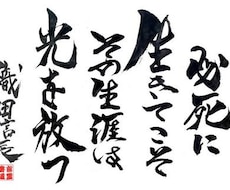 必死に
生きてこそ
其生涯は
光を放つ
織田信長